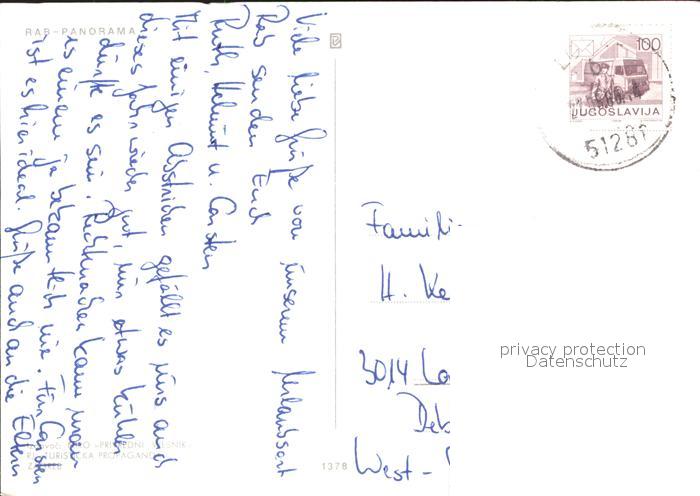 RAB - PANORAMA
Viele liebe Grüße von unserem Urlaubsort
Rab senden Euch
Ruth, Helmut u. Carsten
Mit einigen Abstrichen gefällt es uns auch
dieses Jahr wieder gut, nur etwas kühler
dürfte es sein. Rechtmachen kann man
es einem ja bekanntlich nie. Für Carsten
ist es hier ideal. Grüße auch an die Eltern
TURISTIČKA PROPAGANDA
1378
100
JUGOSLAVIJA
51281
Famili-
H. Ke
3014 La
West -
privacy protection
Datenschutz